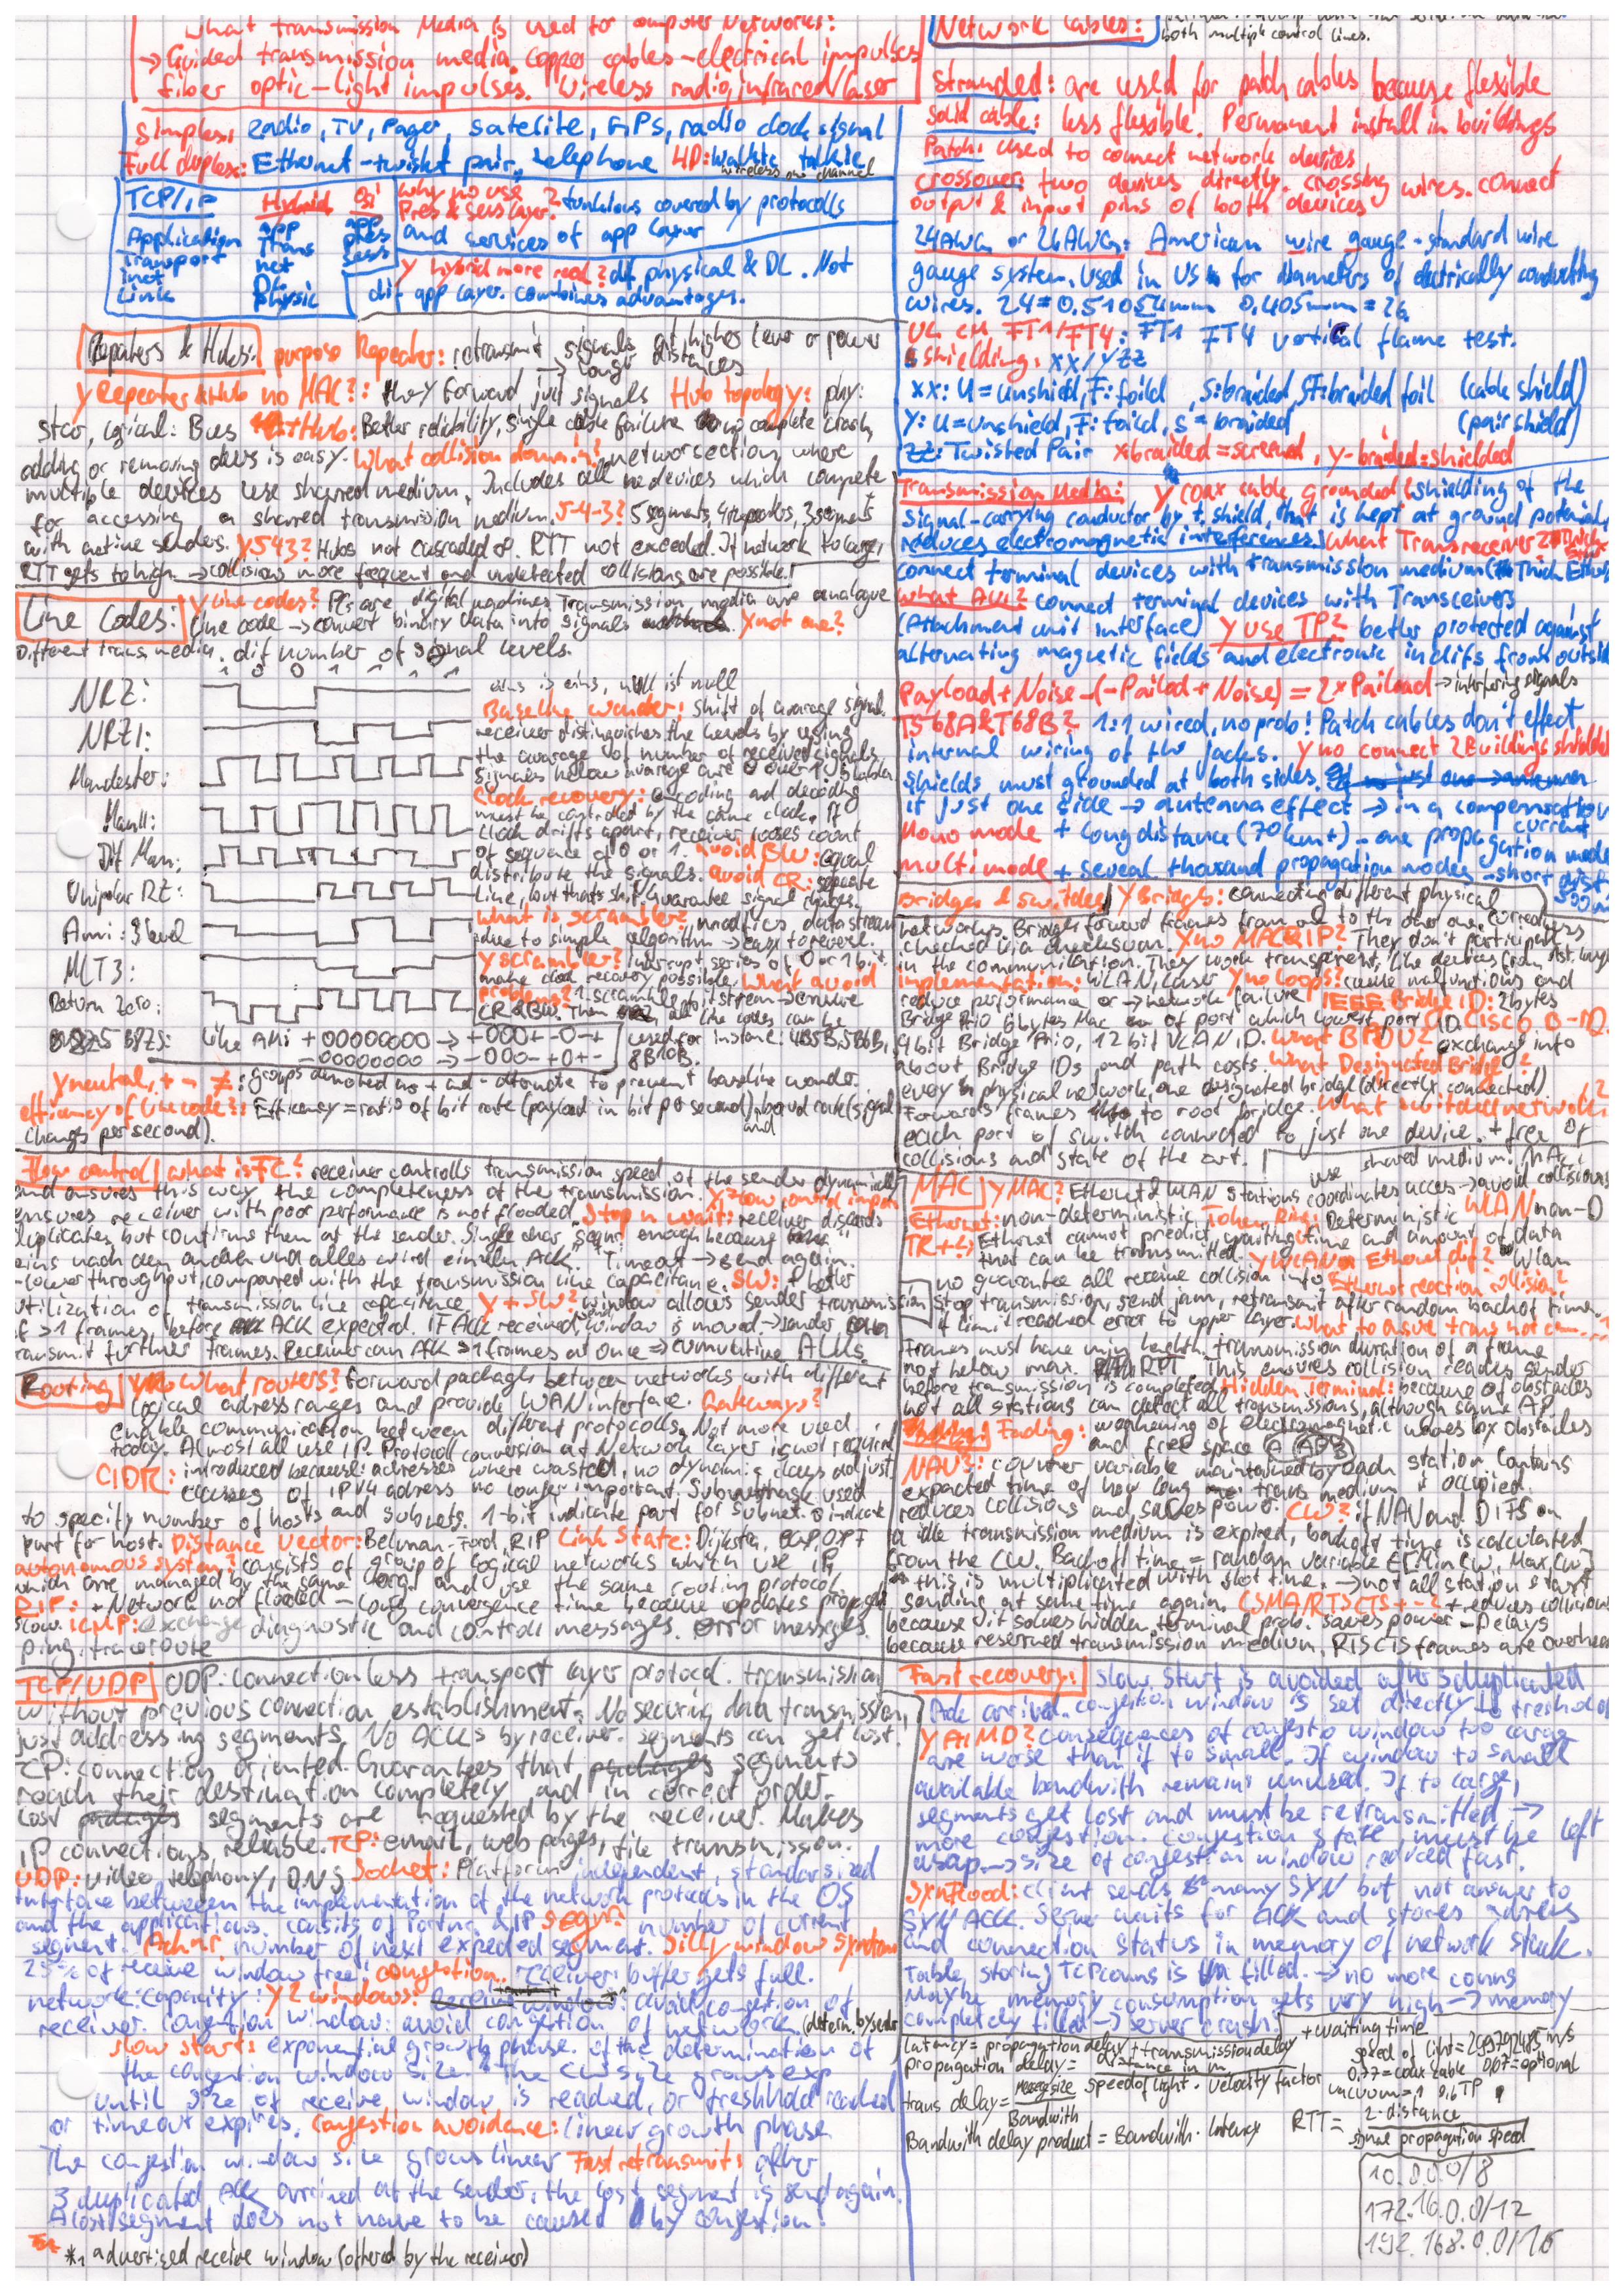 what transmission Media is used for computer Networks:
→ Guided transmission media. Copper cables - electrical impulses
fiber optic - Light impulses. Wireless radio, infrared/laser
Simplex: Radio, TV, Pager, satelite, GPS, radio clock signal
Full duplex: Ethernet - twistet pair, telephone HD: walkie talkie
wireless one channel
TCP/IP Hybrid
Application app app
Transport Trans pres
inet net sess
Link DL
Physic
why no use
Pres & Sess layer? funktions covered by protocolls
and services of app Layer
y hybrid more real? dif physical & DL. Not
dif app layer. combines advantages.
Repeaters & Hubs: purpose Repeater: retransmit signals at higher level or power
→ longer distances
y Repeater & Hub no MAC?: they forward just signals Hub topology: phy:
star, logical: Bus + Hub: Better reliability, single cable failure no complete crash,
adding or removing devs is easy. What collision domain?: network section, where
multible devices use shared medium. Includes all nedevices which compete
for accessing a shared transmission medium. 5-4-3? 5 segments, 4 repeaters, 3 segments
with active senders. y 543? Hubs not cascaded ∞. RTT not exceeded. If network to large,
RTT gets to high. → collisions more frequent and undetected collisions are possible!
Line Codes: y Line codes? PCs are digital machines, Transmission media are analogue
Line code → convert binary data into signals y not one?
Different trans. media. dif number of signal levels.
1 0 0 1 1 1 1
NRZ:
NRZI:
Manchester:
Man II:
Dif Man:
Unipolar RZ:
Ami: 3 level
MLT3:
Return Zero:
B8ZS: Like AMI + 00000000 → +000+-0-+
-00000000 → -000-+0+-
eins is eins, null ist null
Baseline wander: shift of average signal.
receiver distinguishes the levels by using
the avarage of number of received signals
signales below avarage are 0 over 1
Clock recovery: encoding and decoding
must be controled by the same clock. If
clock drifts apart, receiver looses count
of sequence of 0 or 1. avoid BW: equal
distribute the signals. avoid CR: seperate
line, but thats shit. Guarantee signal changes.
What is scrambler? modifies data stream
due to simple algorithm → easy to revert.
y scrambler? interrupt series of 0 or 1 bit.
make clock recovery possible. What avoid
problems? 1. scramble bit stream → remove
CR & BW. Then all line codes can be
used for instance: 4B5B, 5B6B,
8B10B.
y neutral, + - ≠: groups denoted as + and - alternate to prevent baseline wander.
efficiency of line code?: Efficency = ratio of bit rate (payload in bit per second) and baud rate (signal
changes per second).
Flow control what is FC? receiver controlls transmission speed of the sender dynamically
and ensures this way the completeness of the transmission. y flow control impor
ensures receiver with poor performance is not flooded. Stop n wait: receiver discards
duplicates, but confirms them at the sender. Single char seqnr enough because
eins nach dem anderen und alles wird einzeln Ack. Timeout → send again.
- lower throughput, compared with the transmission line capacitance. SW: + better
utilization of transmission line capacitance. y + SW? window allows sender transmission
of >1 frames, before ACK expected. IF ACK received, window is moved → sender can
transmit further frames. Receiver can Ack >1 frames at once ⇒ cumutitive ACKs.
Rooting What routers? Forward packages between networks with different
logical adress ranges and provide WAN interface. Gateways?
enable communication between different protocolls. Not more used
today. Almost all use IP. Protocoll conversion at Network layer is not required
CIDR: introduced because: adresses where wasted, no dynamic class adjust,
classes of IPV4 adress no longer important. Subnetmask used
to specify number of hosts and subnets. 1-bit indicate part for subnet. 0 indicate
part for host. Distance vector: Belman-Ford, RIP Link State: Dijkstra, OSPF
autonomous system? consists of group of logical networks which use IP,
which are managed by the same org. and use the same rooting protocol.
RIP: + Network not flooded - long convergence time because updates propagate
slow. ICMP: exchange diagnostic and controll messages. error messages.
ping, traceroute
TCP/UDP UDP: Connection less transport layer protocol. transmission
without previous connection establishment. No securing data transmission,
just addressing segments. No ACKs by receiver. segments can get lost.
TCP: connection oriented. Guarantees that packages segments
reach their destination completely and in correct order.
Lost packages segments are requested by the receiver. Makes
IP connections reliable. TCP: email, web pages, file transmission.
UDP: video telephony, DNS Socket: Platform independent, standarsized
interface between the implementation of the network protocols in the OS
and the applications. consits of Portnr & IP seqnr: number of current
segment. Acknr. number of next expected segment. Silly window Syndrom
25% of receive window free. congestion: receiver: buffer gets full.
network: capacity! y 2 windows: Receive window*: avoid congestion of
receiver. Congestion window: avoid congestion of network. (determ. by sender
slow start: exponential growth phase. of the determination of
the congestion window size. The CW size grows exp
until size of receive window is reached, or treshhold reached
or timeout expires. Congestion avoidance: linear growth phase
The congestion window size grows linear Fast retransmit: after
3 duplicated Ack arrived at the sender, the lost segment is send again.
A lost segment does not have to be caused by congestion!
*1 advertised receive window (offered by the receiver)
Network Cables:
both multiple control lines.
Stranded: are used for patch cables because flexible
Solid cable: less flexible. Permanent install in buildings
Patch: used to connect network devices
Crossover: two devices directly. crossing wires. connect
output & input pins of both devices
24AWG or 26AWG: American wire gauge - standard wire
gauge system. Used in US for diameters of electrically conducting
wires. 24 = 0.51054mm 0.405mm = 26
UL CM FT1/FT4: FT1 FT4 vertical flame test.
shielding: xx/yzz
xx: U = unshield, F: foild S: braided, SF: braided foil (cable shield)
Y: U = unshield, F: foild, S = braided (pair shield)
zz: Twisted Pair x-braided = screened, y-braided = shielded
Transmission Media: y coax cable grounded? shielding of the
signal-carrying conductor by t. shield, that is kept at ground potencial
reduces electromagnetic interferences. What Transreceiver?
connect terminal devices with transmission medium (Thick Ethern
What AUI? connect terminal devices with Transceivers
(Attachment unit interface) y use TP? better protected against
alternating magnetic fields and electronic from outside
Payload + Noise - (-Pailod + Noise) = 2x Paiload → interfering signals
T568A & T568B? 1:1 wired, no prob! Patch cables don't effect
internal wiring of the jacks. y no connect 2 Buildings shielded
shields must grounded at both sides.
if just one side → antenna effect → in a compensation
current
Mono mode + long distance (70km+) - one propagation mode
multi mode + seveal thousand propagation modes - short dist
500m
Bridges & switches y Bridges: connecting different physical
networks. Bridges forward frames from one to the other one. Correctness
checked via checksum. y no MAC & IP? They don't participate
in the communication. They work transparent, like devices from dist. layer
implementation: WLAN, Laser y no loops? cause malfunctions and
reduce performance or → network failure IEEE Bridge ID: 2bytes
Bridge Prio 6 bytes Mac of port which lowest port ID. CISCO B-ID.
4 bit Bridge Prio, 12 bit VLAN ID. What BPDU? exchange info
about Bridge IDs and path costs. What Designated Bridge?
every physical network, one designated bridge (directly connected).
Forwards frames to root bridge. What switched network?
each port of switch connected to just one device. + free of
collisions and state of the art.
MAC y MAC? Ethernet & WLAN stations use shared medium. MAC
coordinates acces → avoid collisions
Ethernet: non-deterministic, Token Ring: Deterministic WLAN non-D
TR + ↯ Ethernet cannot predict, waiting time and amount of data
that can be transmitted. y WLAN Ethernet dif? Wlan
no guarantee all receive collision info Ethernet reaction collision?
Stop transmission, send jam, retransmit after random backof time.
if limit reached error to upper layer. What to asure trans not
Frames must have min length. transmission duration of a frame
not below max. RTT This ensures collision reaches sender
before transmission is completed. Hidden Terminal: because of obstacles
not all stations can detect all transmissions, although same AP
Fading: weakening of electromagnetic waves by obstacles
and free space A AP B
NAV's: counter variable maintained by each station. Contains
expected time of how long trans medium is occupied.
reduces collisions and saves power. CW? if NAV and DIFS on
a idle transmission medium is expired, backoff time is calculated
from the CW. Backoff time = random variable E[MinCW, MaxCW]
this is multiplicated with slot time. → not all station start
sending at same time again. CSMA/RTSCTS + -? + reduces collisions
because it solves hidden terminal prob. saves power - Delays
because reserved transmission medium. RTSCTS frames are overhead
Fast recovery: slow start is avoided after 3 duplicated
Ack arrival. congestion window is set directly to treshold
y AIMD? consequences of congestion window too large
are worse than if to small. If window to small
available bandwith remains unused. If to large,
segments get lost and must be retransmitted →
more congestion. congestion state must be left
asap. → size of congestion window reduced fast.
Synflood: client sends many SYN but not answer to
SYN ACK. Server waits for ACK and stores adress
and connection status in memory of network stack.
Table, storing TCPconns is filled. → no more conns
Maybe memory consumption gets very high → memory
completely filled → server crash!
Latency = propagation delay + transmission delay + waiting time
propagation delay = distance in m / speed of light · velocity factor
speed of light = 299792485 m/s
0.77 = coax cable 0.67 = optional
vacuum = 1 0.6 TP
trans delay = message size / Bandwith
Bandwith delay product = Bandwith · latency
RTT = 2 · distance / signal propagation speed
10.0.0.0/8
172.16.0.0/12
192.168.0.0/16